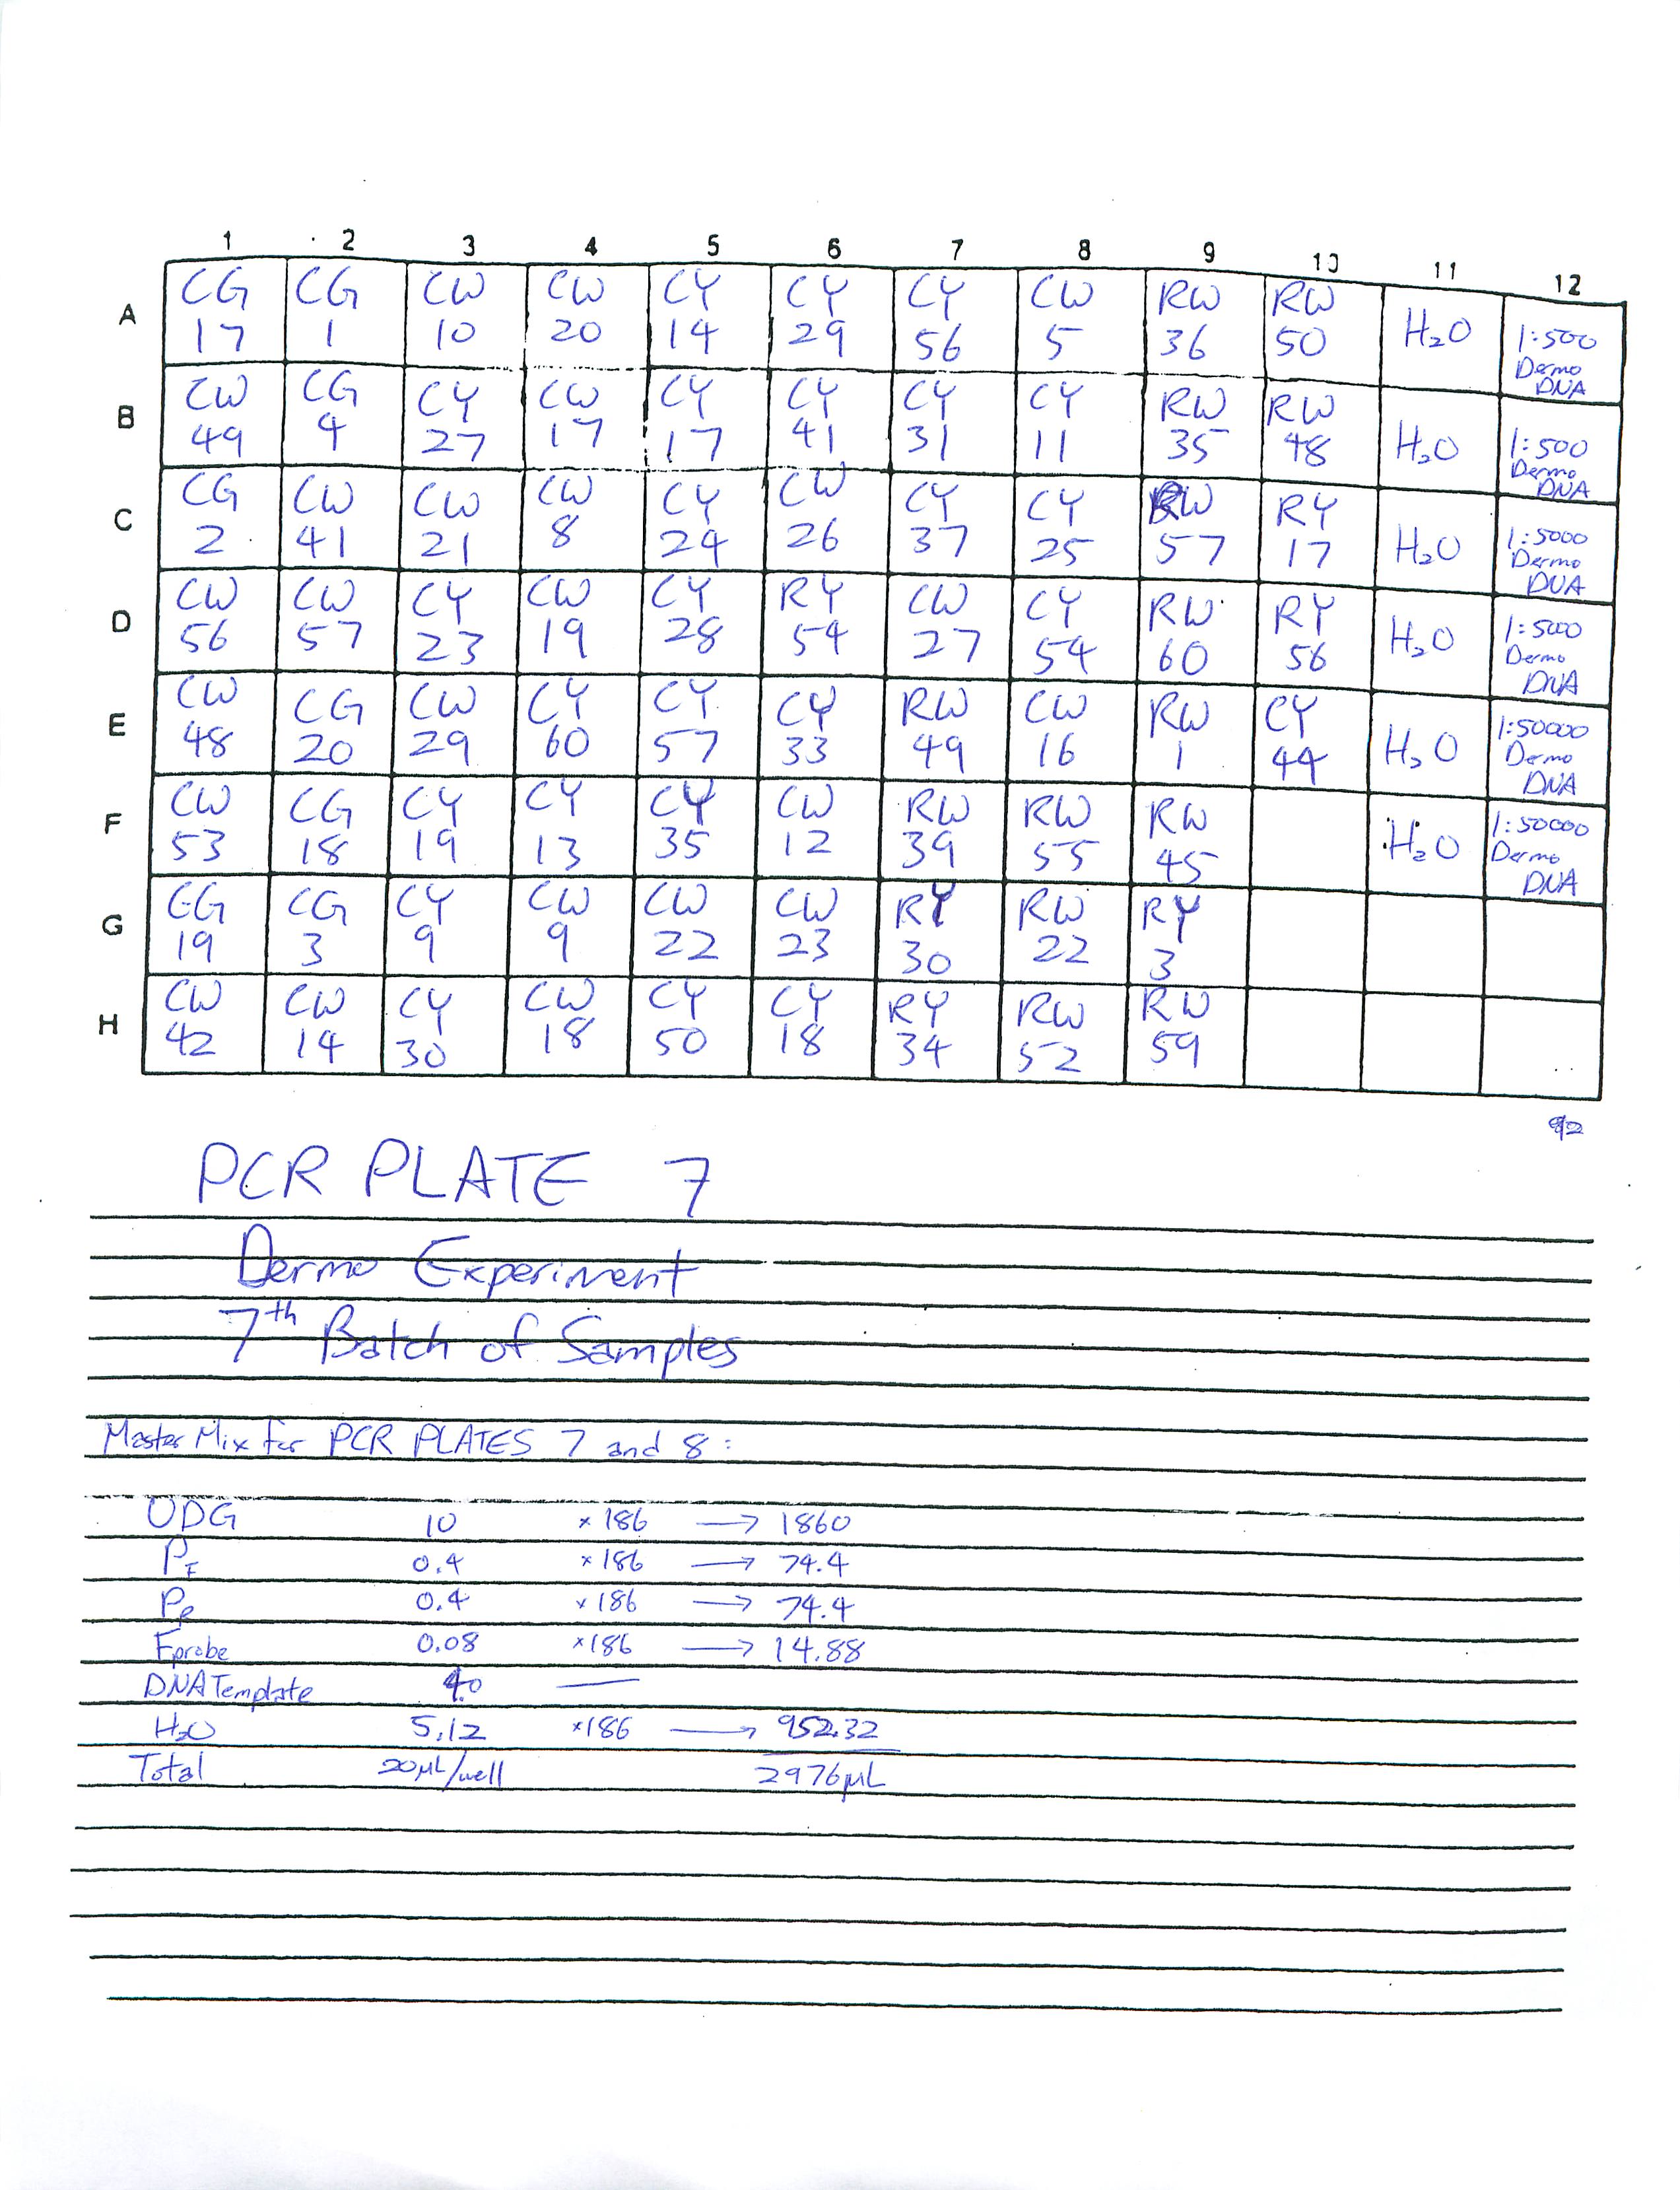 1 2 3 4 5 6 7 8 9 10 11 12
A CG 17 CG 1 CW 10 CW 20 CY 14 CY 29 CY 56 CW 5 RW 36 RW 50 H₂O 1:500 Dermo DNA
B CW 49 CG 4 CY 27 CW 17 CY 17 CY 41 CY 31 CY 11 RW 35 RW 48 H₂O 1:500 Dermo DNA
C CG 2 CW 41 CW 21 CW 8 CY 24 CW 26 CY 37 CY 25 RW 57 RY 17 H₂O 1:5000 Dermo DNA
D CW 56 CW 57 CY 23 CW 19 CY 28 RY 54 CW 27 CY 54 RW 60 RY 56 H₂O 1:5000 Dermo DNA
E CW 48 CG 20 CW 29 CY 60 CY 57 CY 33 RW 49 CW 16 RW 1 CY 44 H₂O 1:50000 Dermo DNA
F CW 53 CG 18 CY 19 CY 13 CY 35 CW 12 RW 39 RW 55 RW 45 H₂O 1:50000 Dermo DNA
G CG 19 CG 3 CY 9 CW 9 CW 22 CW 23 RY 30 RW 22 RY 3
H CW 42 CW 14 CY 30 CW 18 CY 50 CY 18 RY 34 RW 52 RW 59
PCR PLATE 7
Dermo Experiment
7th Batch of Samples
Master Mix for PCR PLATES 7 and 8:
UDG 10 ×186 → 1860
PF 0.4 ×186 → 74.4
PR 0.4 ×186 → 74.4
Fprobe 0.08 ×186 → 14.88
DNA Template 4.0 —
H₂O 5.12 ×186 → 952.32
Total 20µL/well 2976µL